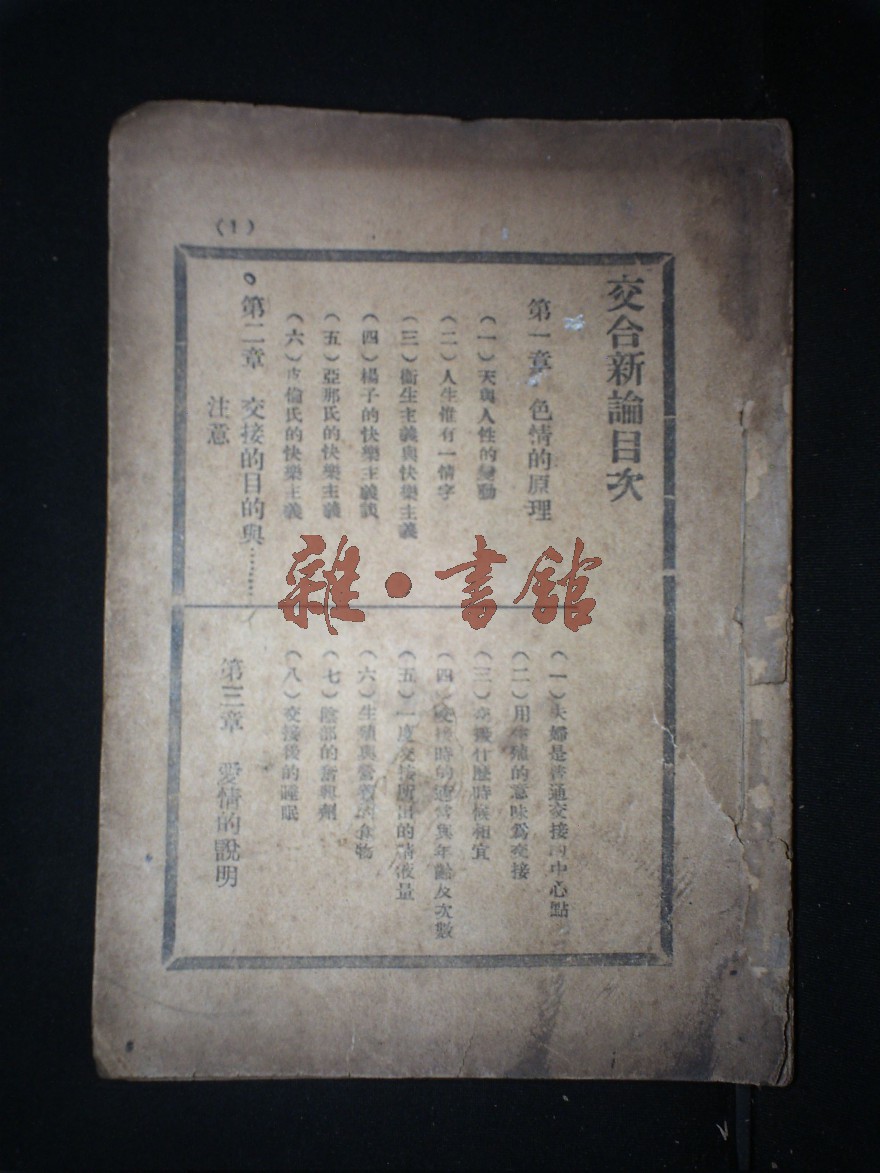 (1)
交合新論目次
第一章 色情的原理
(一)天與人性的變動
(二)人生惟有一情字
(三)衞生主義與快樂主義
(四)楊子的快樂主義談
(五)亞那氏的快樂主義
(六)皮倫氏的快樂主義
第二章 交接的目的與………
注意
(一)夫婦是普通交接的中心點
(二)用生殖的意味爲交接
(三)交接什麽時候相宜
(四)交接時的適當與年齡及次數
(五)一度交接所出的精液量
(六)生殖與營養的食物
(七)陰部的奮興劑
(八)交接後的睡眠
第三章 愛情的說明
雜•書館